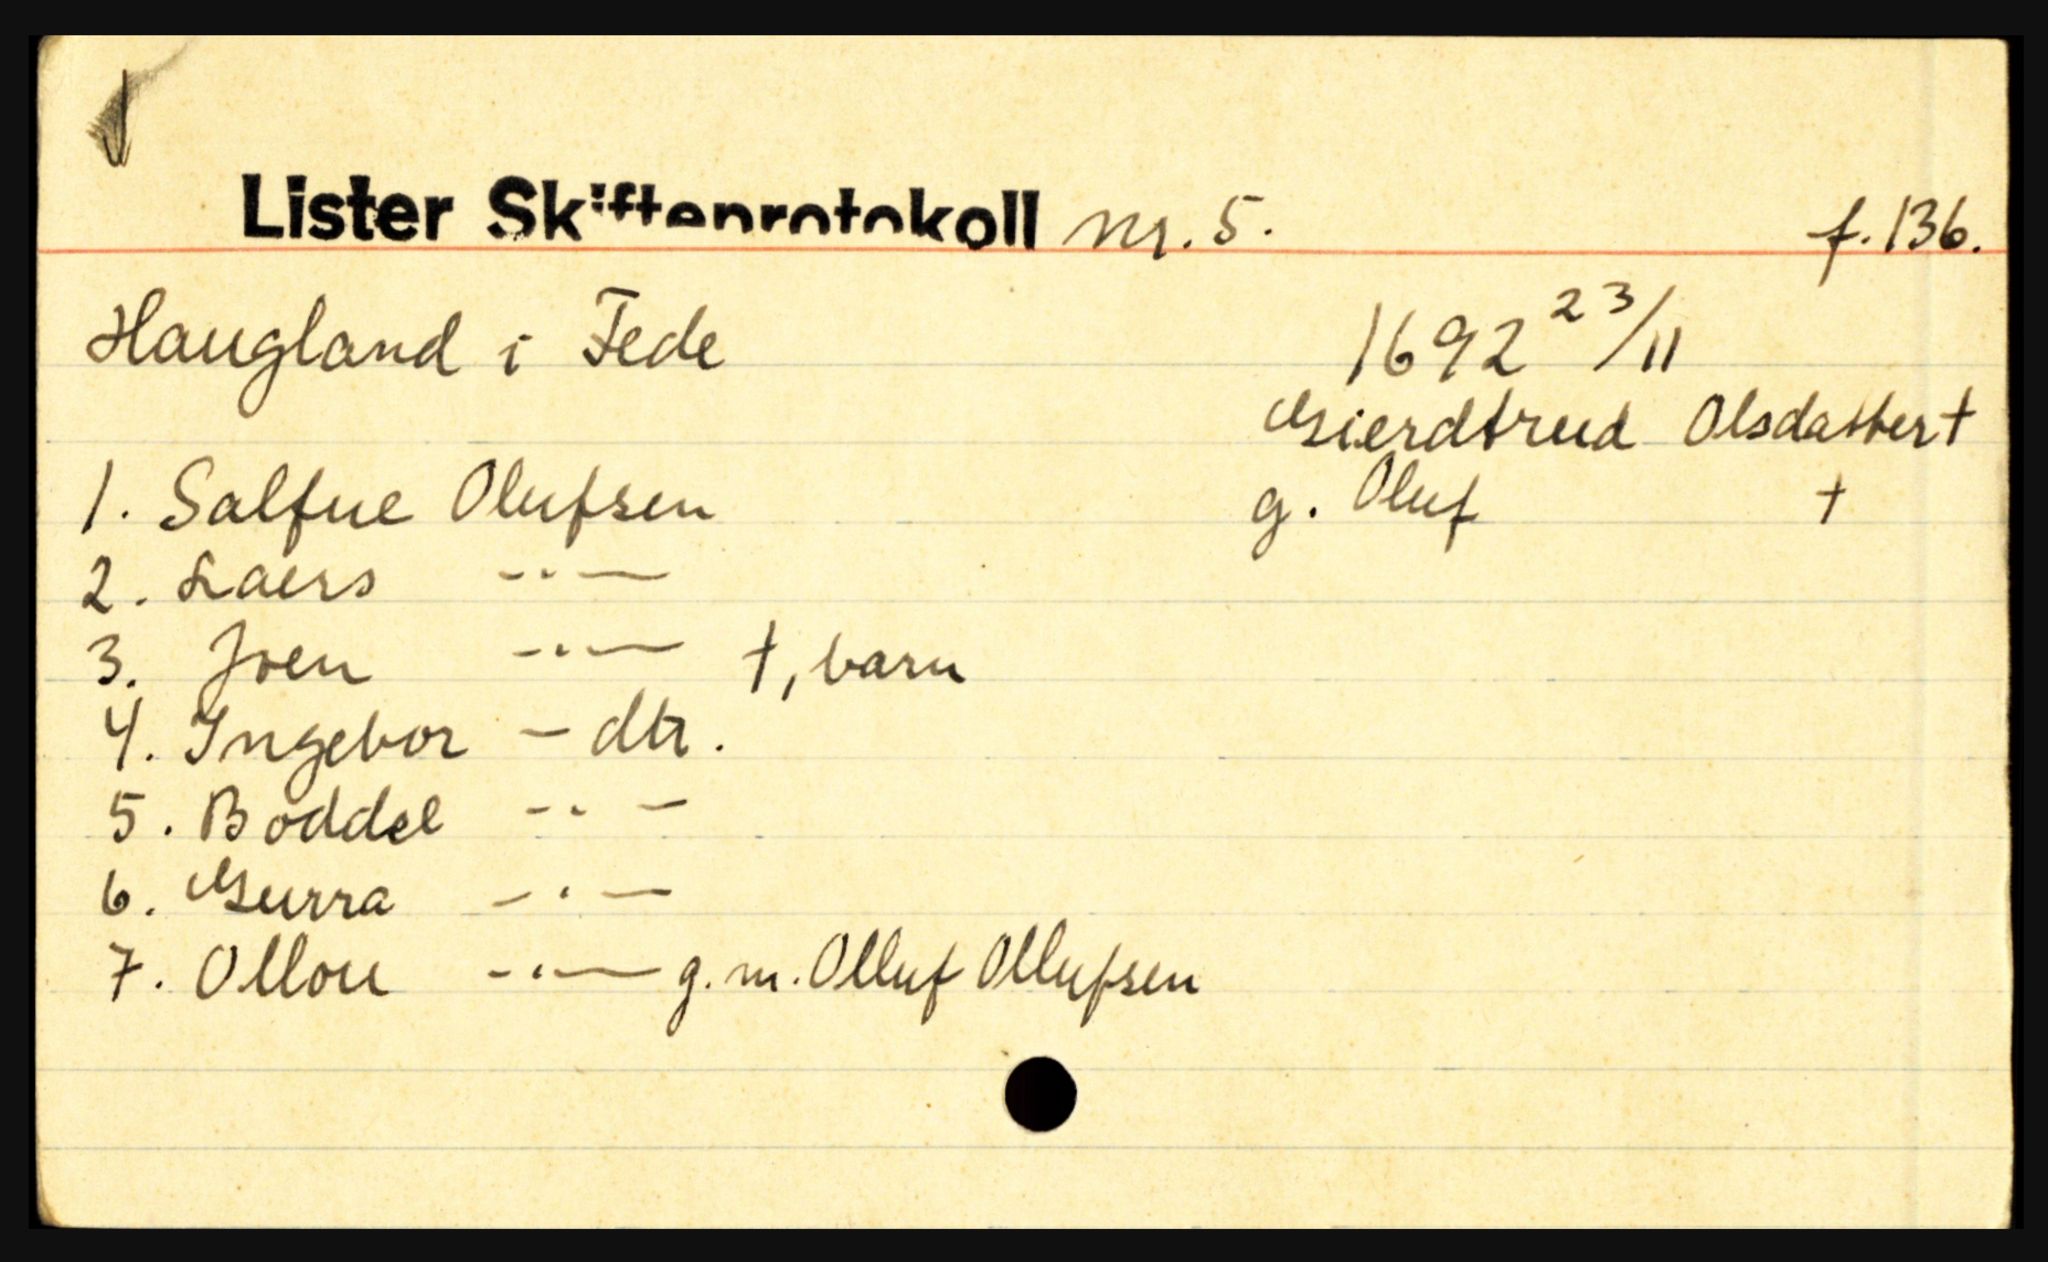 Lister Skifteprotokoll nr. 5. f. 136.
Haugland i Fede 1692 23/11
Gierdtrud Olsdatter †
1. Salfue Olufsen g. Oluf †
2. Laers -"-
3. Joen -"- †, barn
4. Ingebor - dtr.
5. Boddel -"-
6. Gurra -"-
7. Ollou -"- g. m. Olluf Ollufsen